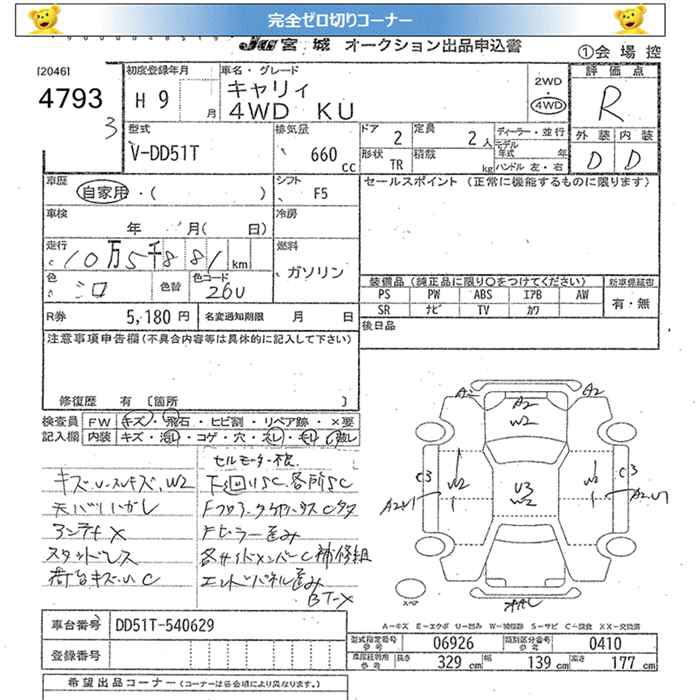 完全ゼロ切りコーナー
JU 宮城 オークション出品申込書
①会場控
[2046]
4793
3
初度登録年月
H 9 月
車名・グレード
キャリィ
4WD KU
2WD
・
4WD
評価点
R
外装 内装
D D
型式
V-DD51T
排気量
660 cc
ドア 2
定員 2 人
形状 TR
積載 kg
ディーラー・並行
モデル年式 年
ハンドル 左・右
車歴
自家用・( )
シフト
F5
セールスポイント (正常に機能するものに限ります)
車検
年 月( 日)
冷房
走行
10万5千881 km
燃料
ガソリン
色
シロ
色替
色コード
26U
装備品 (純正品に限り○をつけてください)
新車保証書
PS PW ABS エアB AW
有・無
SR ナビ TV カワ
R券 5,180 円
名変通知期限 月 日
後日品
注意事項申告欄(不具合内容等は具体的に記入して下さい)
修復歴 有 〔箇所 〕
検査員 FW キズ・飛石・ヒビ割・リペア跡・×要
記入欄 内装 キズ・汚れ・コゲ・穴・スレ・
セルモーター不良
キズ、W2
下回りSC、各所SC
アンテナ X
スタッドレス
荷台キズ
各サイドメンバーC補修組
エンドパネル歪み
BT-X
A2
A2
W2
A2
C3
W2
U3
W2
W2
C3
スペア
A-キズ E-エクボ U-凹み W-補修跡 S-サビ C-腐食 XX-交換済
車台番号 DD51T-540629
登録番号
型式指定番号 参考 06926
類別区分番号 参考 0410
長さ 329 cm 幅 139 cm 高さ 177 cm
希望出品コーナー (コーナーは各会場により異なります。)